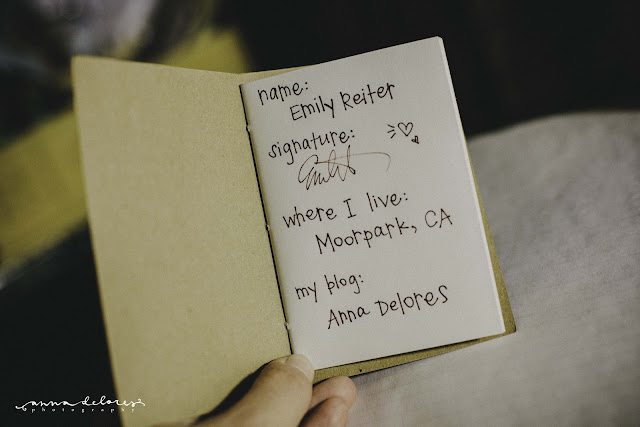 name:
Emily Reiter
signature:
where I live:
Moorpark, CA
my blog:
Anna Delores
anna delores
photography